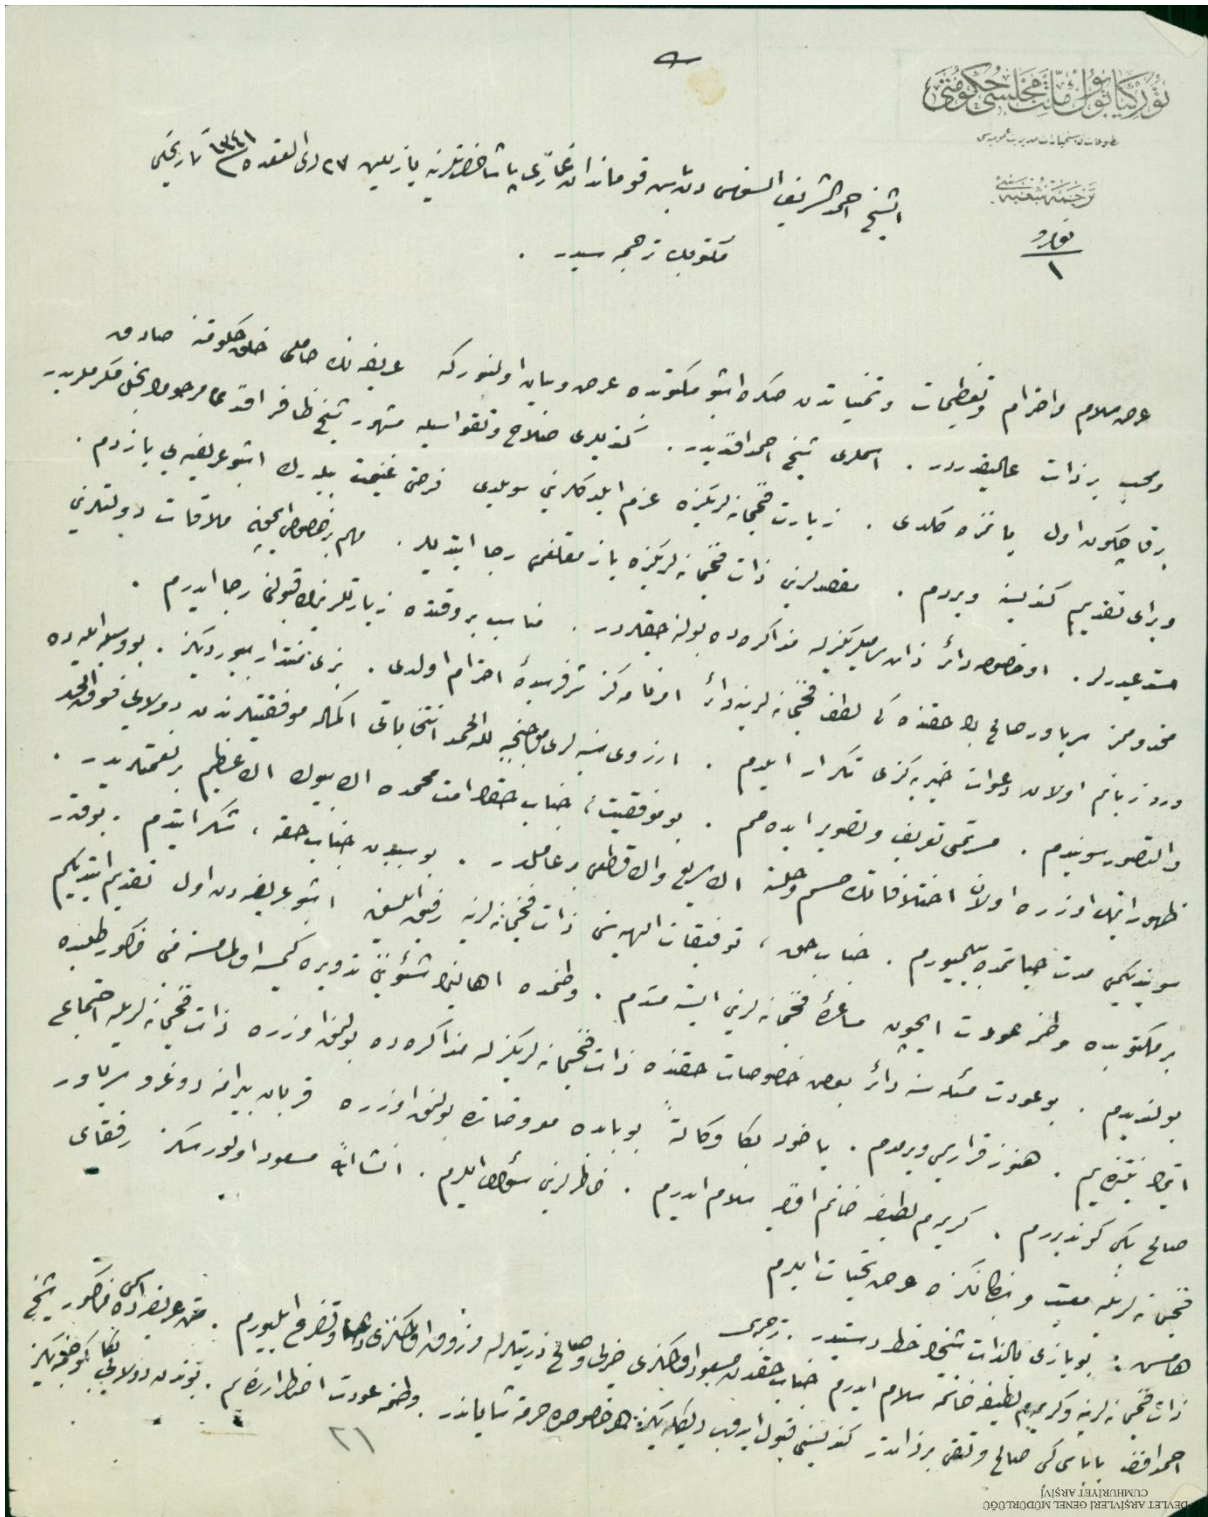 توركيا بيوك ملت مجلسى حكومتى
مطبوعات و استخبارات مديريت عموميه سى
ترجمه شعبه سى
نومرو
١
الشيخ احمد الشريف السنوسى دن باش قوماندان غازى پاشا حضرتلرينه يازيلان ٢٣ ذى القعده ١٣٤١ تاريخلى
مكتوبك ترجمه سيدر .
عرض سلام واحترام وتعظيمات وتمنياتدن صكره اشبو مكتوبده عرض وبيان اولنور كه عريضه نك حاملى خلق حكومته صادق
ومحب بر ذات عاليقدردر . اسملرى شيخ احمد افنديدر . كنديلرى صلاح وتقواسيله مشهور شيخ ظافر افندى مرحومك نجل مكرملريدر
بر قاچ كون اول يانمزه كلدى . زيارت فخيمانه لريكزه عزم ايلدكلرينى سويلدى فرصتى غنيمت بيله رك اشبو عريضه يى يازدم .
وبراى تقديم كندينه ويردم . مقصدلرينى ذات فخيمانه لريكزه يازمقلغمى رجا ايتديلر . مهم بر خصوص ايچون ملاقات دولتلرينى
مستدعيدرلر . او خصوصه دائر ذات سامیلريكزله مذاكره ده بولنه جقلردر . مناسب بر وقتده زيارتلرينك قبولنى رجا ايدرم .
مخدوممز سرياور صالح بك حقنده كى لطف فخيمانه لرينه دائر امرنامه كز شرفرسيدۀ احترام اولدى . بزى منتدار بيورديكز . بو وسيله ايله ده
ورد زبانم اولان دعوات خيريه كزى تكرار ايلدم . ارزوى سنيه لرى موجبنجه لله الحمد انتخاباتى اكمال موفقيتلرندن دولايى فوق الحد
والتصور سويندم . مسرتمى تعريف وتصوير ايده مم . بو موفقيت ، جناب حقك امت محمده اك بيوك اك عظيم بر نعمتيدر .
ظهور ايتمك اوزره اولان اختلافاتك حسم وحلنه اك سريع واك قطعى بر عاملدر . بو سببدن جناب حقه ، شكر ايتدم . بو قدر
سوينديكمى مدت حياتمده بيلميورم . جناب حق ، توفيقات الهيه سنى ذات فخيمانه لرينه رفيق ايلسين . اشبو عريضه دن اول تقديم ايتديكم
بر مكتوبده وطنمه عودت ايچون مساعدۀ فخيمانه لرينى ايسته مشدم . وطنمده اهالينك شئوننى تدويره كيمسه اولمامسنه مبنى مذكور طلبده
بولندیدم . بو عودت مسئله سنه دائر بعض خصوصات حقنده ذات فخيمانه لريكزله مذاكره ده بولنمق اوزره ذات فخيمانه لريله اجتماعى
ايتمك نيتنده يم . هنوز قراريمى ويرمدم . ياخود بكا وكالةً بو بابده معروضاتده بولنمق اوزره قربان بيرامنه دوغرو سرياور
صالح بكى كوندیررم . كريمه م لطيفه خانم افندى يه سلام ايدرم . خاطرلرينى سؤال ايلرم . انشاء الله مسعود اولورسكز رفقاى
فخيمانه لريله معيت واركانكزه عرض تحيات ايلرم
هامش : بو يازى بالذات شيخك خط دستيدر . مترجمى
ذات فخيمانه لرينه وكريمه م لطيفه خانمه سلام ايدرم جناب حقدن مسعود اولمكزى خيرلى وصالح ذريتلرله مرزوق اولمكزى دعا وتضرع ايليورم . متن عريضه ده كى مذكور شيخ
احمد افندى باباسى كبى صالح وتقى بر ذاتدر كندیسنى قبول ايدوب ديكله يكز هر خصوصده حرمته شاياندر . وطنمه عودت اضطرارنده يم . بوندن دولايى بكا كوجنمه يكز
٢١
DEVLET ARŞİVLERİ GENEL MÜDÜRLÜĞÜ
CUMHURİYET ARŞİVİ